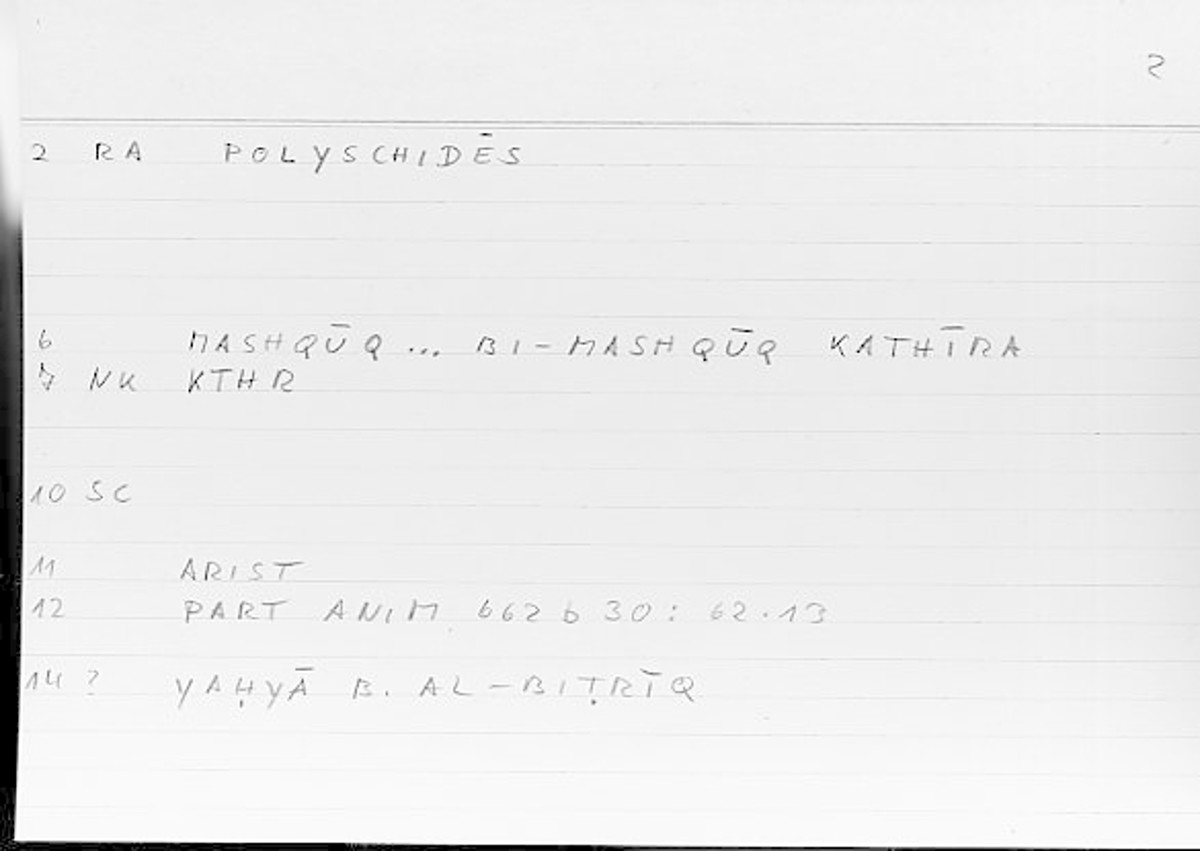 2
2 RA POLYSCHIDĒS
6 MASHQŪQ ... BI-MASHQŪQ KATHĪRA
7 NK KTHR
10 SC
11 ARIST
12 PART ANIM 662 b 30: 62.13
14 ? YAḤYĀ B. AL-BIṬRĪQ